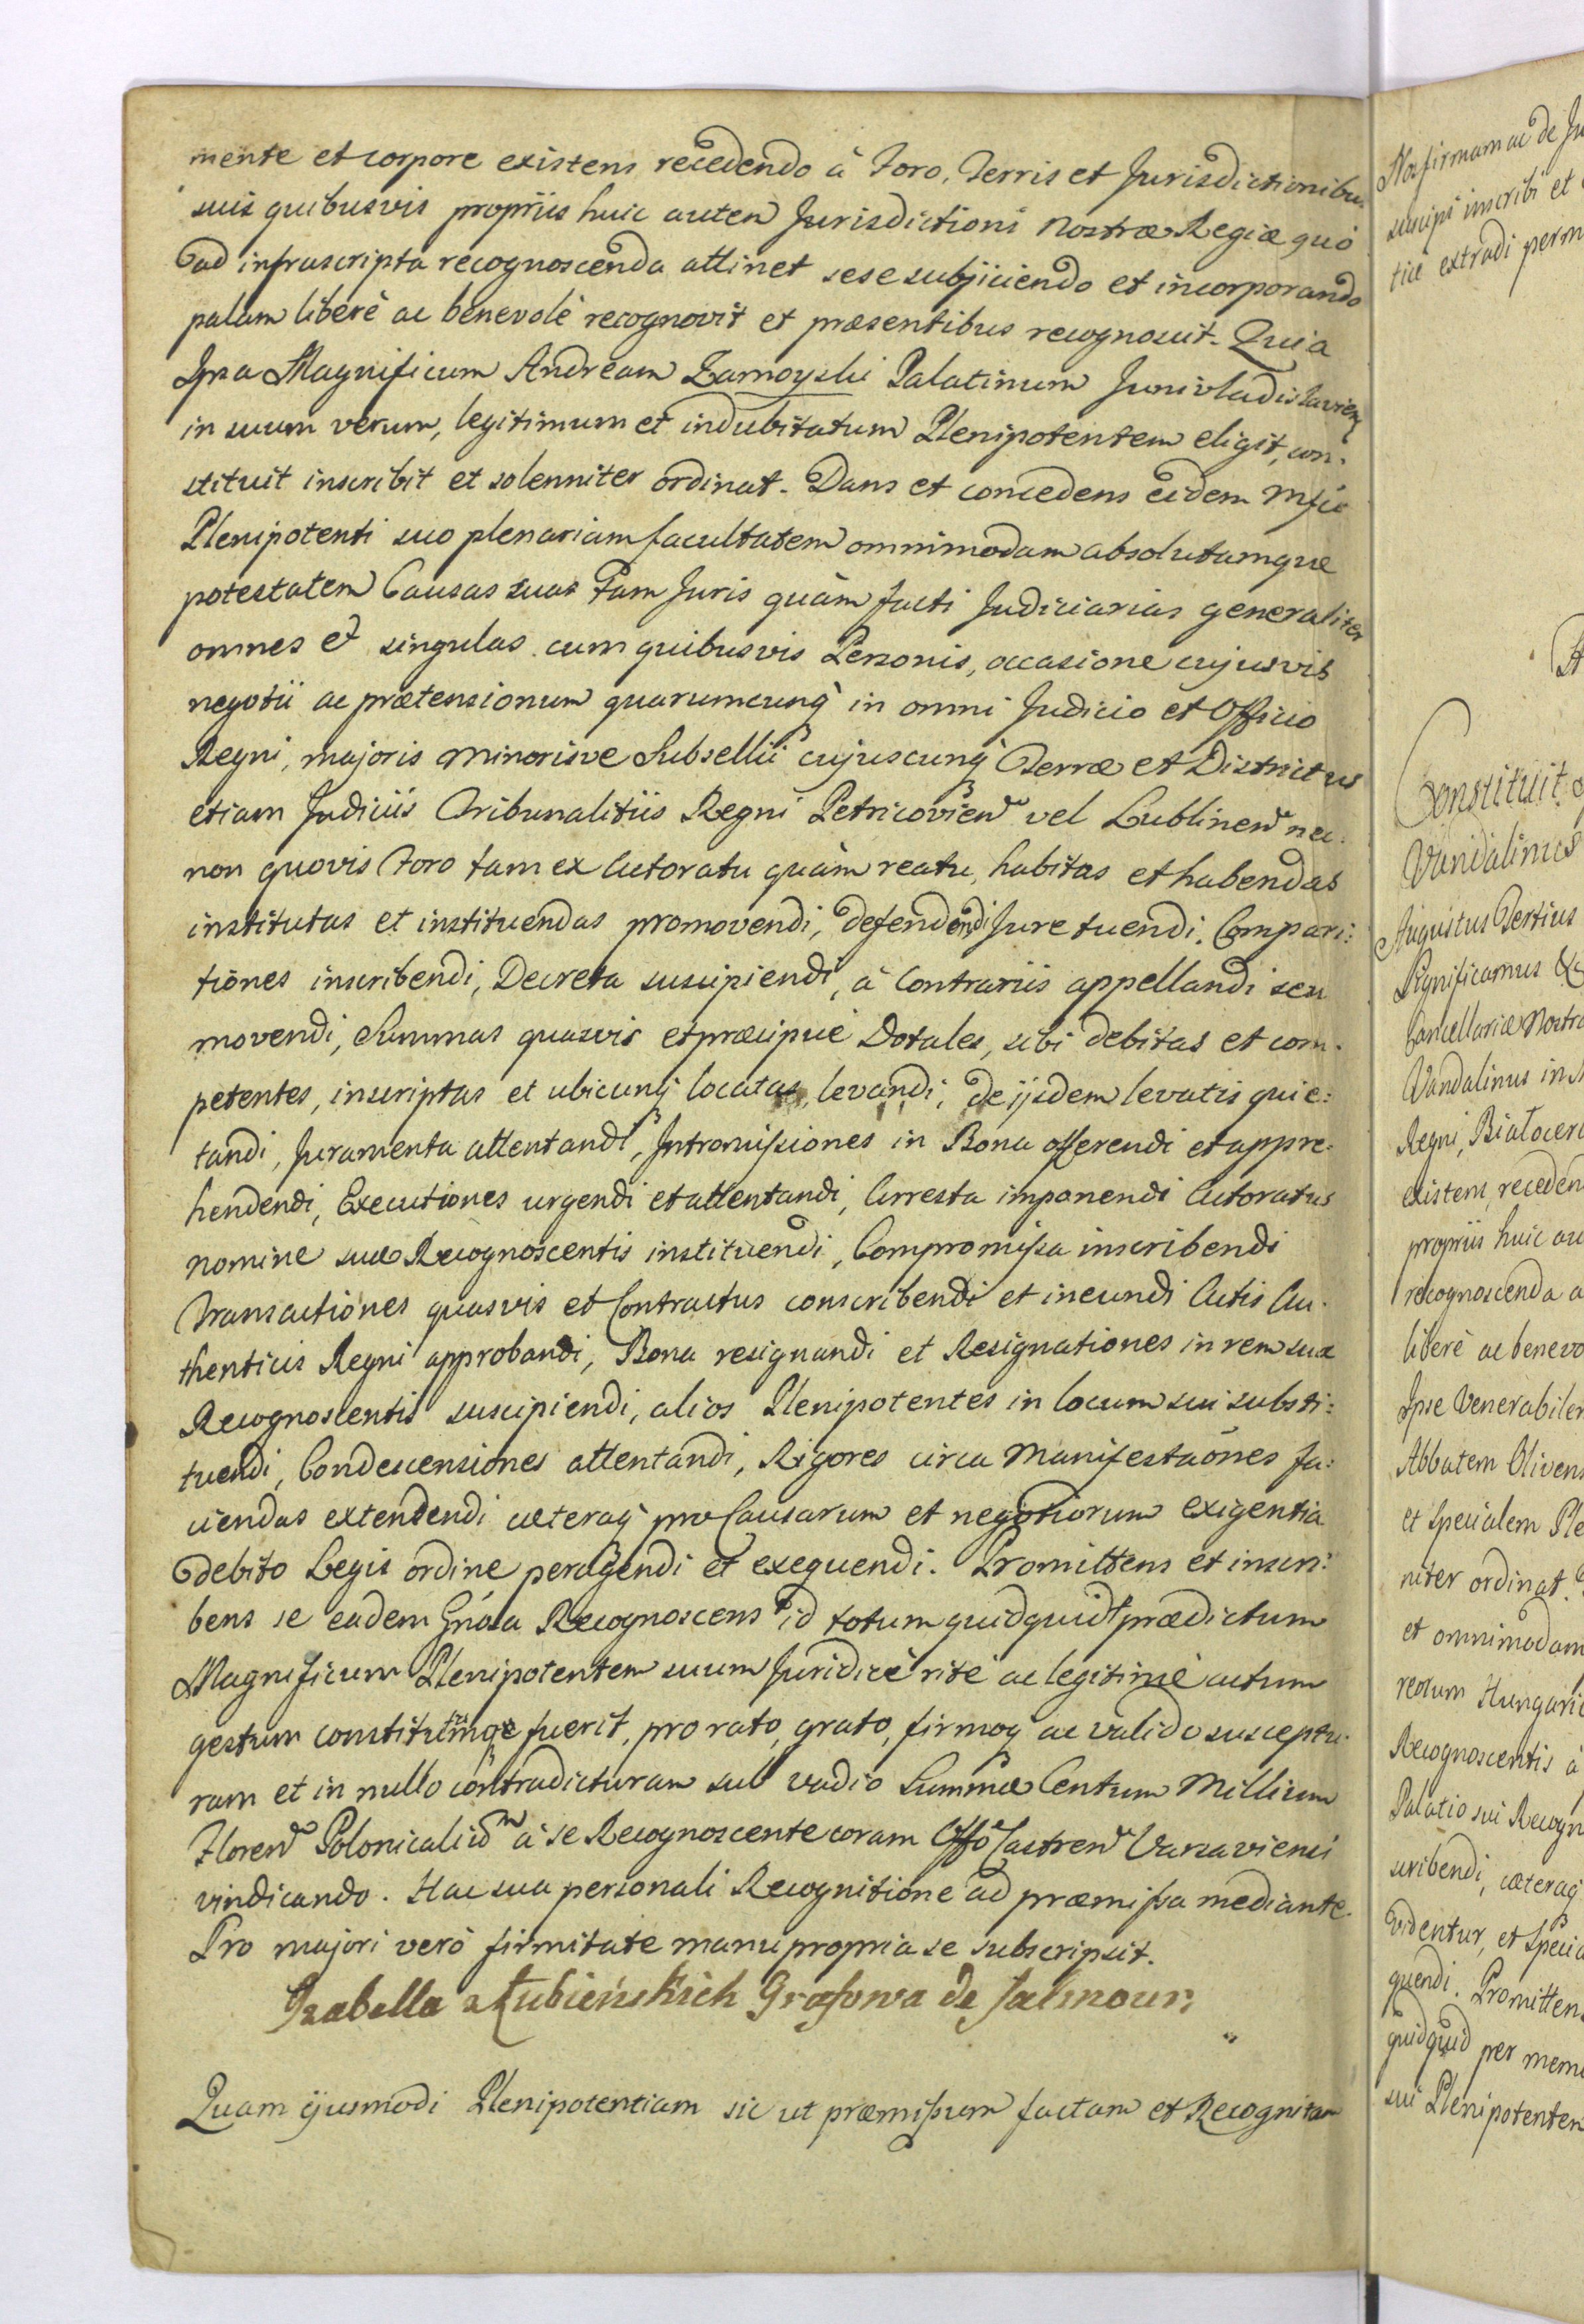 mente et corpore existens recedendo à Foro, Terris et Jurisdictionibus
suis quibusvis propriis huic autem Jurisdictioni Nostræ Regiæ quò
ad infrascripta recognoscenda attinet sese subjiciendo et incorporando
palam liberè ac benevolè recognovit et præsentibus recognoscit. Quia
Ipsa Magnificum Andream Zamoyski Palatinum Junivladislavien
in suum verum, legitimum et indubitatum Plenipotentem eligit, con:
stituit inscribit et solenniter ordinat. Dans et concedens eidem Mfco
Plenipotenti suo plenariam facultatem omnimodam absolutamque
potestatem Causas suas tam Juris quàm facti Judiciarias generaliter
omnes et singulas cum quibusvis Personis, occasione cujusvis
negotii ac prætensionum quarumcunq in omni Judicio et Officio
Regni, majoris minorisve Subsellii cujuscunq Terræ et Districtus
etiam Judiciis Tribunalitiis Regni Petricovien vel Lublinen nec:
non quovis Foro tam ex Actoratu quàm reatu, habitas et habendas
institutas et instituendas promovendi, defendendi Jure tuendi. Compari:
tiones inscribendi, Decreta suscipiendi, à Contrariis appellandi seu
movendi, Summas quasvis et præcipuè Dotales, sibi debitas et com:
petentes, inscriptas et ubicunq locatas, levandi, de ijsdem levatis quie:
tandi, Juramenta attentandi, Intromissiones in Bona offerendi et appre:
hendendi, Executiones urgendi et attentandi, Arresta imponendi Actoratus
nomine suæ Recognoscentis instituendi, Compromissa inscribendi
Transactiones quasvis et Contractus conscribendi et ineundi Actis Au:
thenticis Regni approbandi, Bona resignandi et Resignationes in rem suæ
Recognoscentis suscipiendi, alios Plenipotentes in locum sui substi:
tuendi, Condescensiones attentandi, Rigores circa Manifestaōnes fa:
ciendas extendendi cæteraq pro Causarum et negotiorum exigentia
debito Legis ordine peragendi et exequendi. Promittens et inscri:
bens se eadem Gnosa Recognoscens id totum quidquid prædictum
Magnificum Plenipotentem suum Juridicè ritè ac legitimè actum
gestum constitutumqe fuerit, pro rato, grato, firmoq ac valido susceptu:
ram et in nullo contradicturam sub vadio Summæ Centum Millium
Floren Polonicaliū à se Recognoscente coram Offō Castren Varsaviensi
vindicando. Hac sua personali Recognitione ad præmissa mediante.
Pro majori verò firmitate manu propria se subscripsit.
Izabella z Łubieńskich Grafowa de Salmour
Quam ejusmodi Plenipotentiam sic ut præmissum factam et Recognitam
Nos firmam ac de Ju
suscipi inscribi et
ticè extradi perm
Constituit
Vandalinus
Augustus Tertius
Significamus
Cancellariæ Nostra
Vandalinus in
Regni, Białocer
existens, receden
propriis huic au
recognoscenda a
liberè ac benevo
Ipse Venerabilem
Abbatem Olivens
et Specialem Ple
niter ordinat.
et omnimodam
rerum Hungaric
Recognoscentis à
Palatio sui Recogn
scribendi, cæteraq
videntur, et Specia
quendi. Promittens
quidquid per mem
sui Plenipotentem